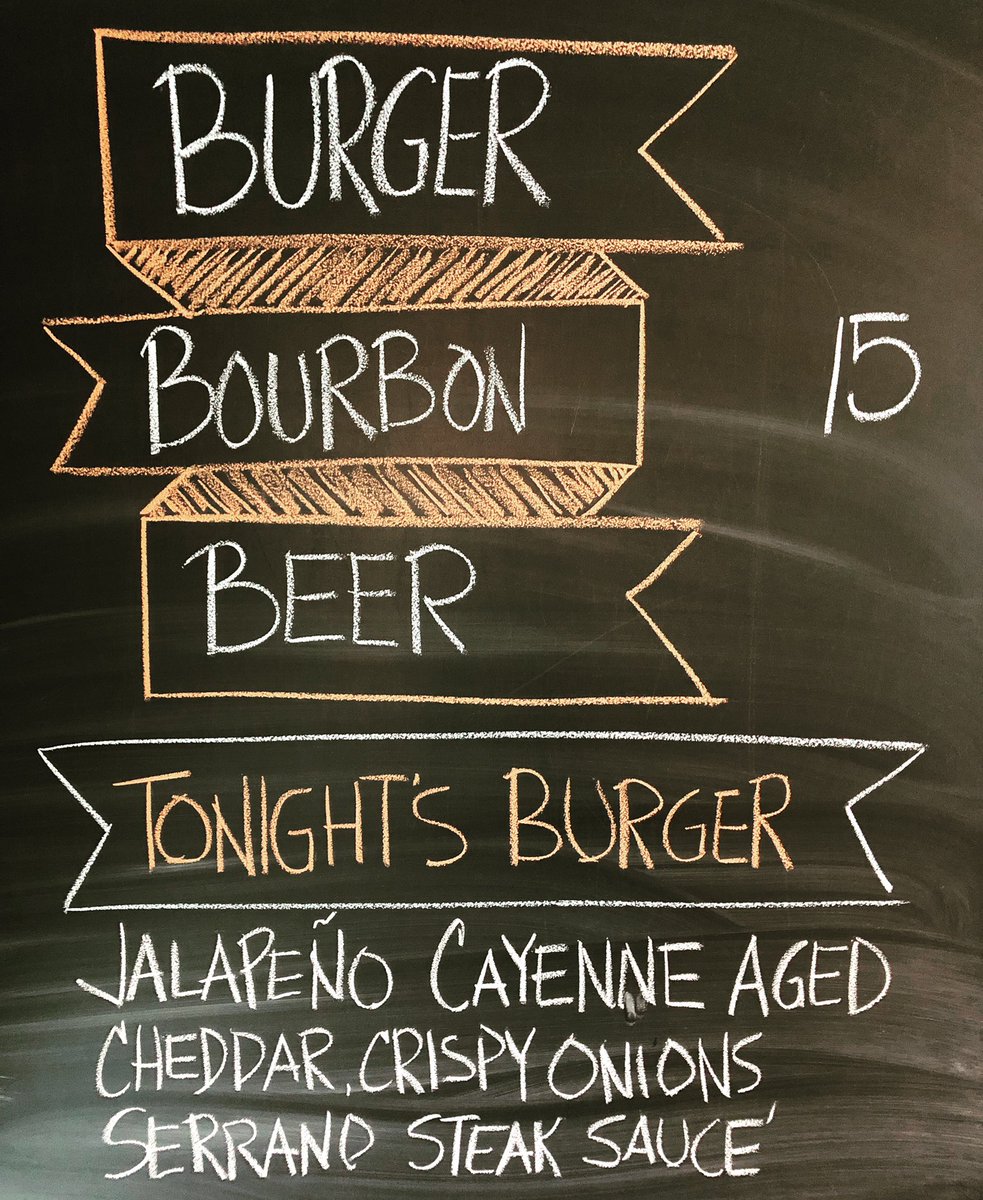 BURGER
BOURBON 15
BEER
TONIGHT'S BURGER
JALAPEÑO CAYENNE AGED
CHEDDAR, CRISPY ONIONS
SERRANO STEAK SAUCE